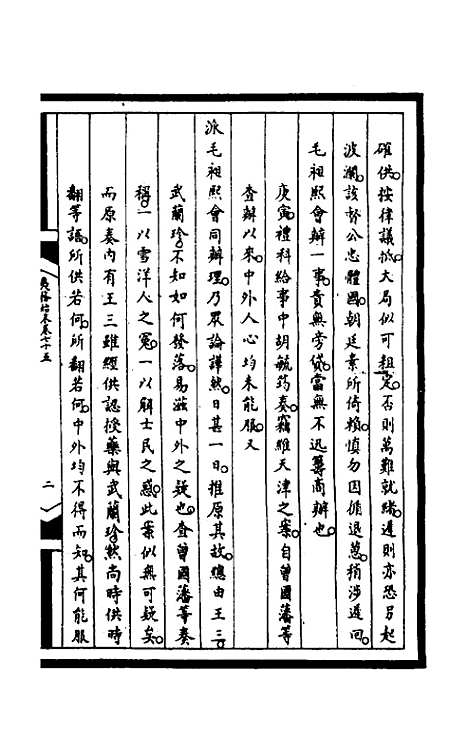 確供。按律議抵。大局似可粗定。否則萬難就緒。遲則亦恐另起
波瀾。該督公忠體國。朝廷素所倚賴。慎勿因循退葸。稍涉遲回。
毛昶熙會辦一事。責無旁貸。當無不迅籌商辦也。
庚寅。禮科給事中胡毓筠奏。竊維天津之案。自曾國藩等
查辦以來。中外人心均未能服。又
派毛昶熙會同辦理。乃眾論譁然。日甚一日。推原其故。總由王三。
武蘭珍。不知如何發落。易滋中外之疑也。查曾國藩等奏
稱。一以雪洋人之冤。一以解士民之惑。此案似無可疑矣。
而原奏內有王三雖經供認授藥與武蘭珍。然尚時供時
翻等語。所供若何。所翻若何。中外均不得而知。其何能服
夷務始末卷七十五
二